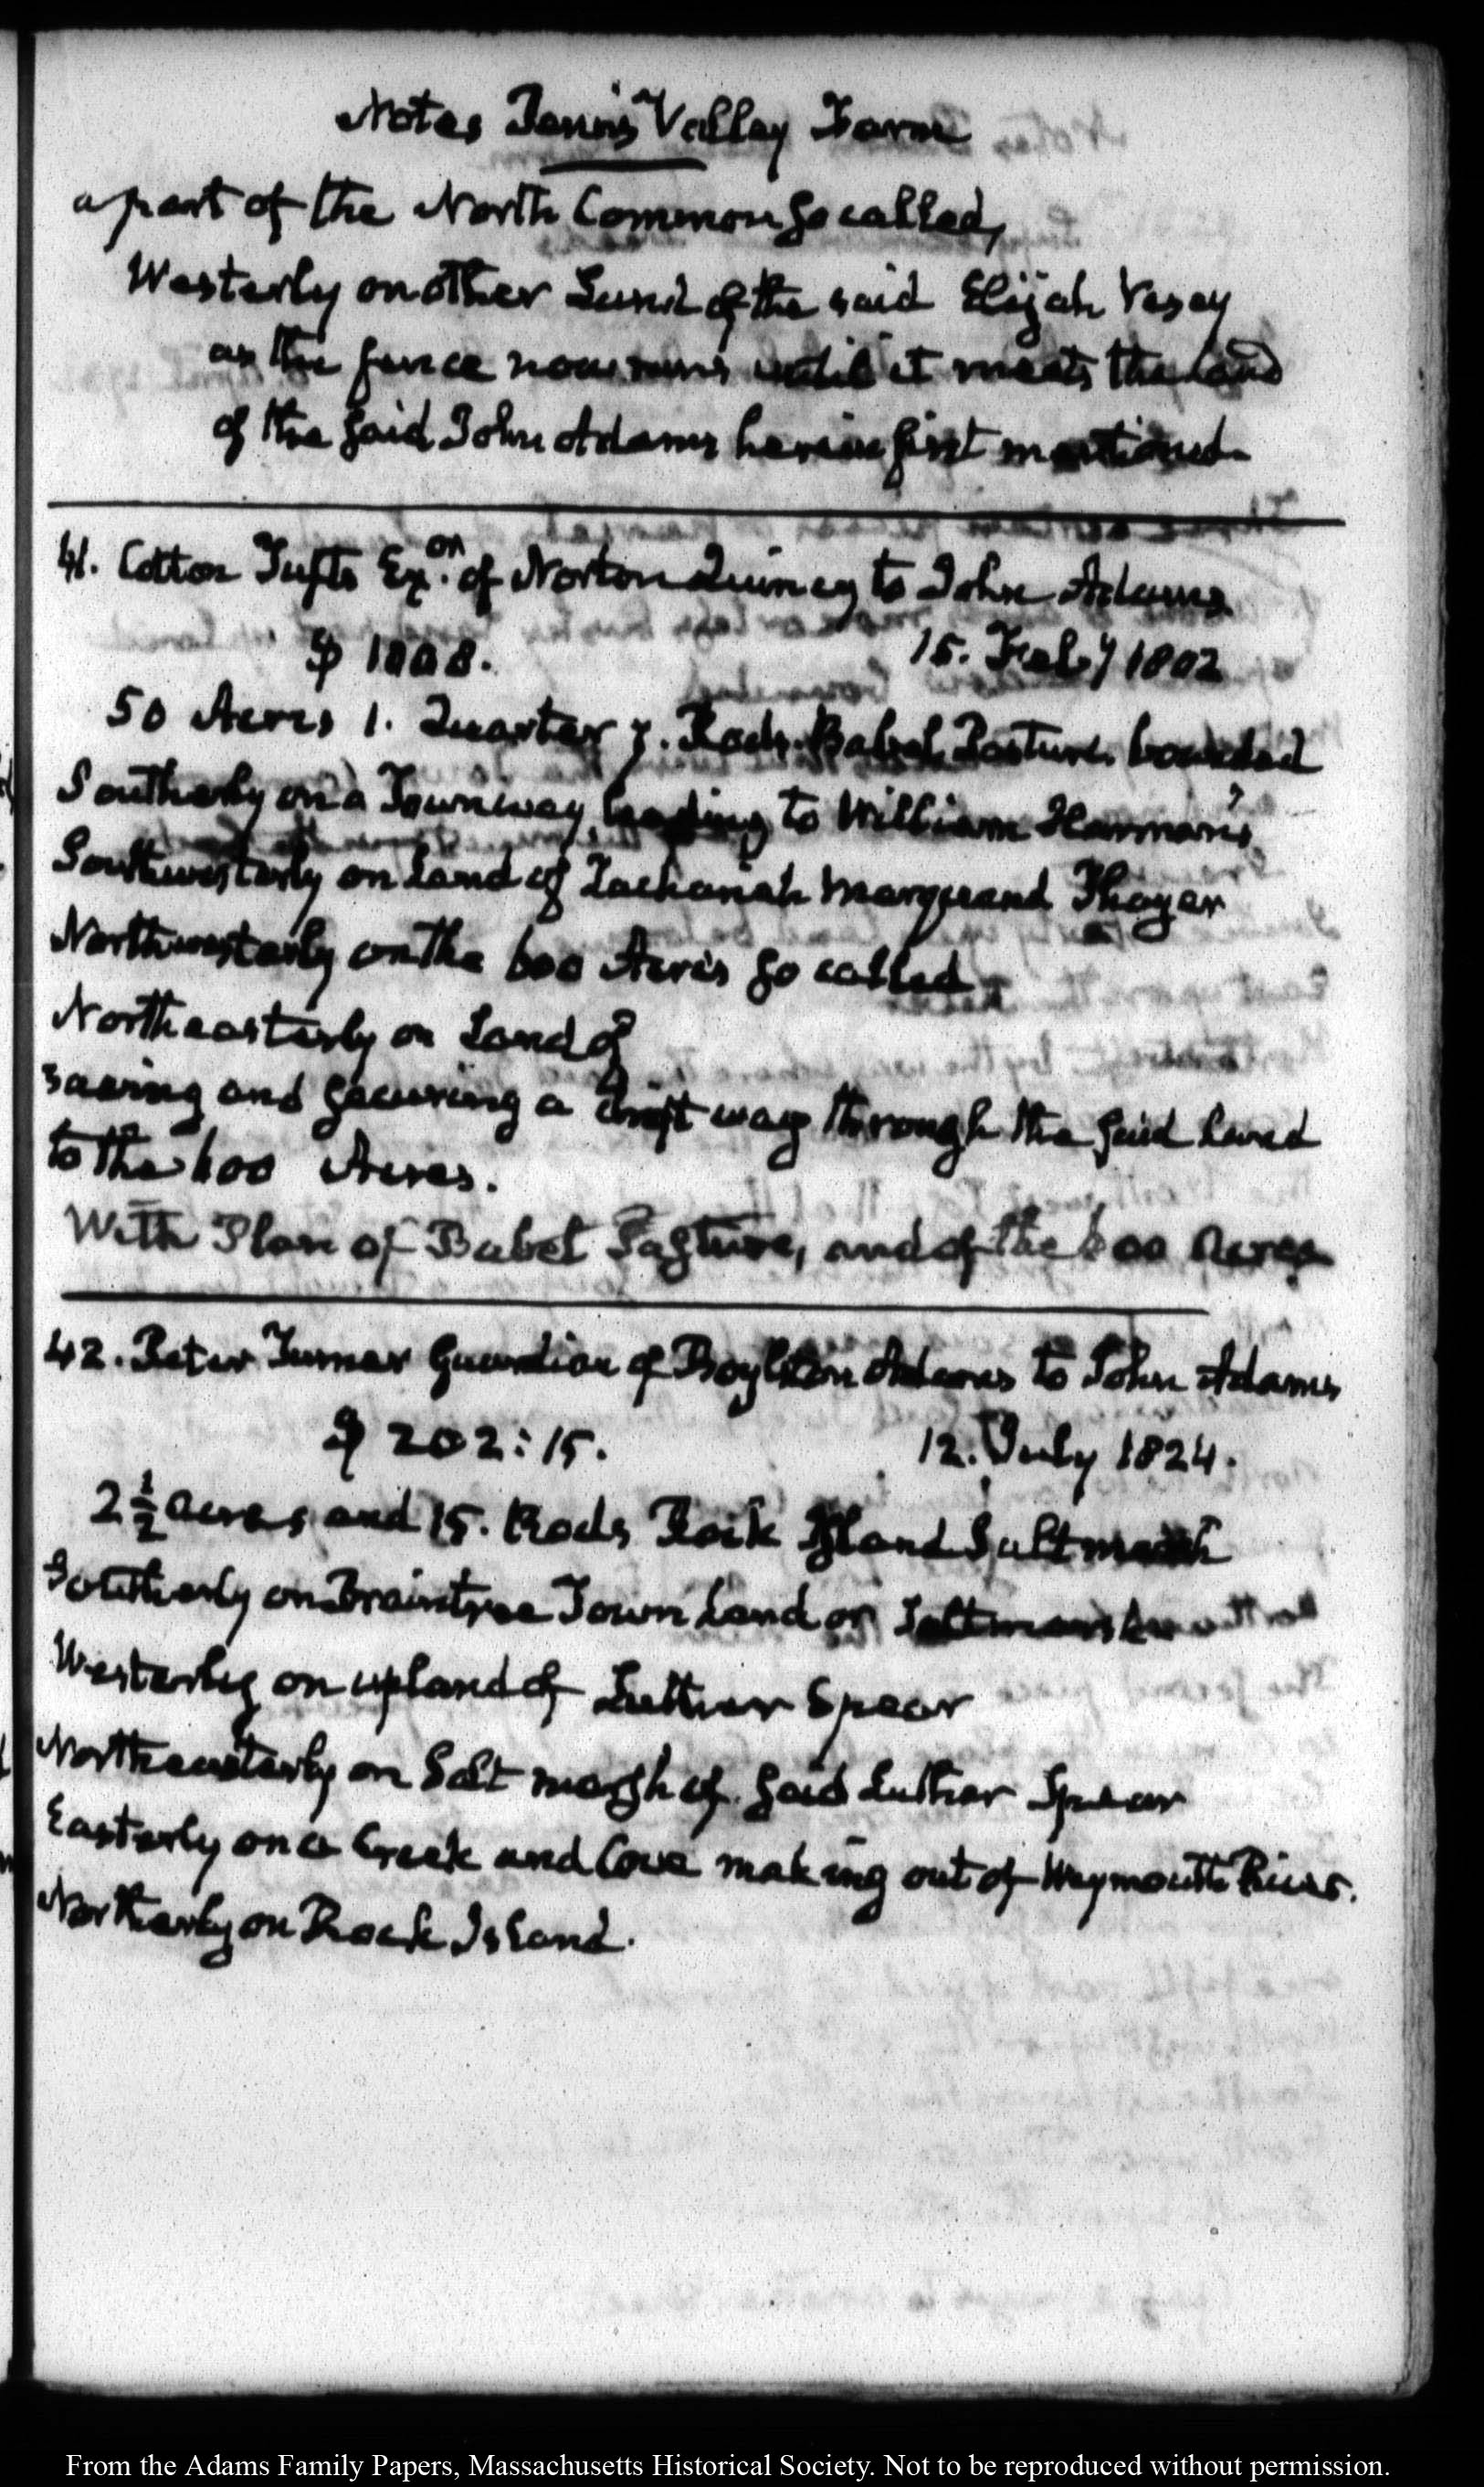 Notes Penn's Valley Farm
a part of the North Common so called,
Westerly on other Land of the said Elijah Vesey
as the fence now runs until it meets the land
of the said John Adams herein first mentioned
41. Cotton Tufts Ex.or of Norton Quincy to John Adams
$ 1008. 15. Feby 1802
50 Acres 1. Quarter 7. Rods. Babel Pasture. bounded
Southerly on a Townway, leading to William Harman's
Southwesterly on Land of Zachariah Marquand Thayer
Northwesterly on the 600 Acres so called
Northeasterly on Land of
saving and securing a drift way through the said land
to the 600 Acres.
With Plan of Babel Pasture, and of the 600 Acres
42. Peter Turner Guardian of Boylston Adams to John Adams
$ 202:15. 12. July 1824.
2 1/2 acres and 15. Rods Rock Island Salt marsh
Southerly on Braintree Town Land or Saltmarsh
Westerly on upland of Luther Spear
Northeasterly on Salt marsh of said Luther Spear
Easterly on a Creek and Cove making out of Weymouth River.
Northerly on Rock Island.
From the Adams Family Papers, Massachusetts Historical Society. Not to be reproduced without permission.